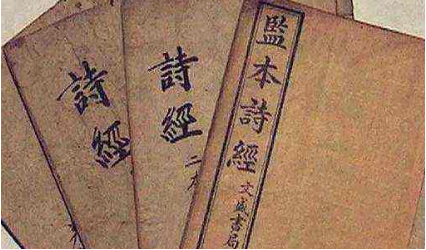 詩經
詩經
二本
監本詩經 文盛書局